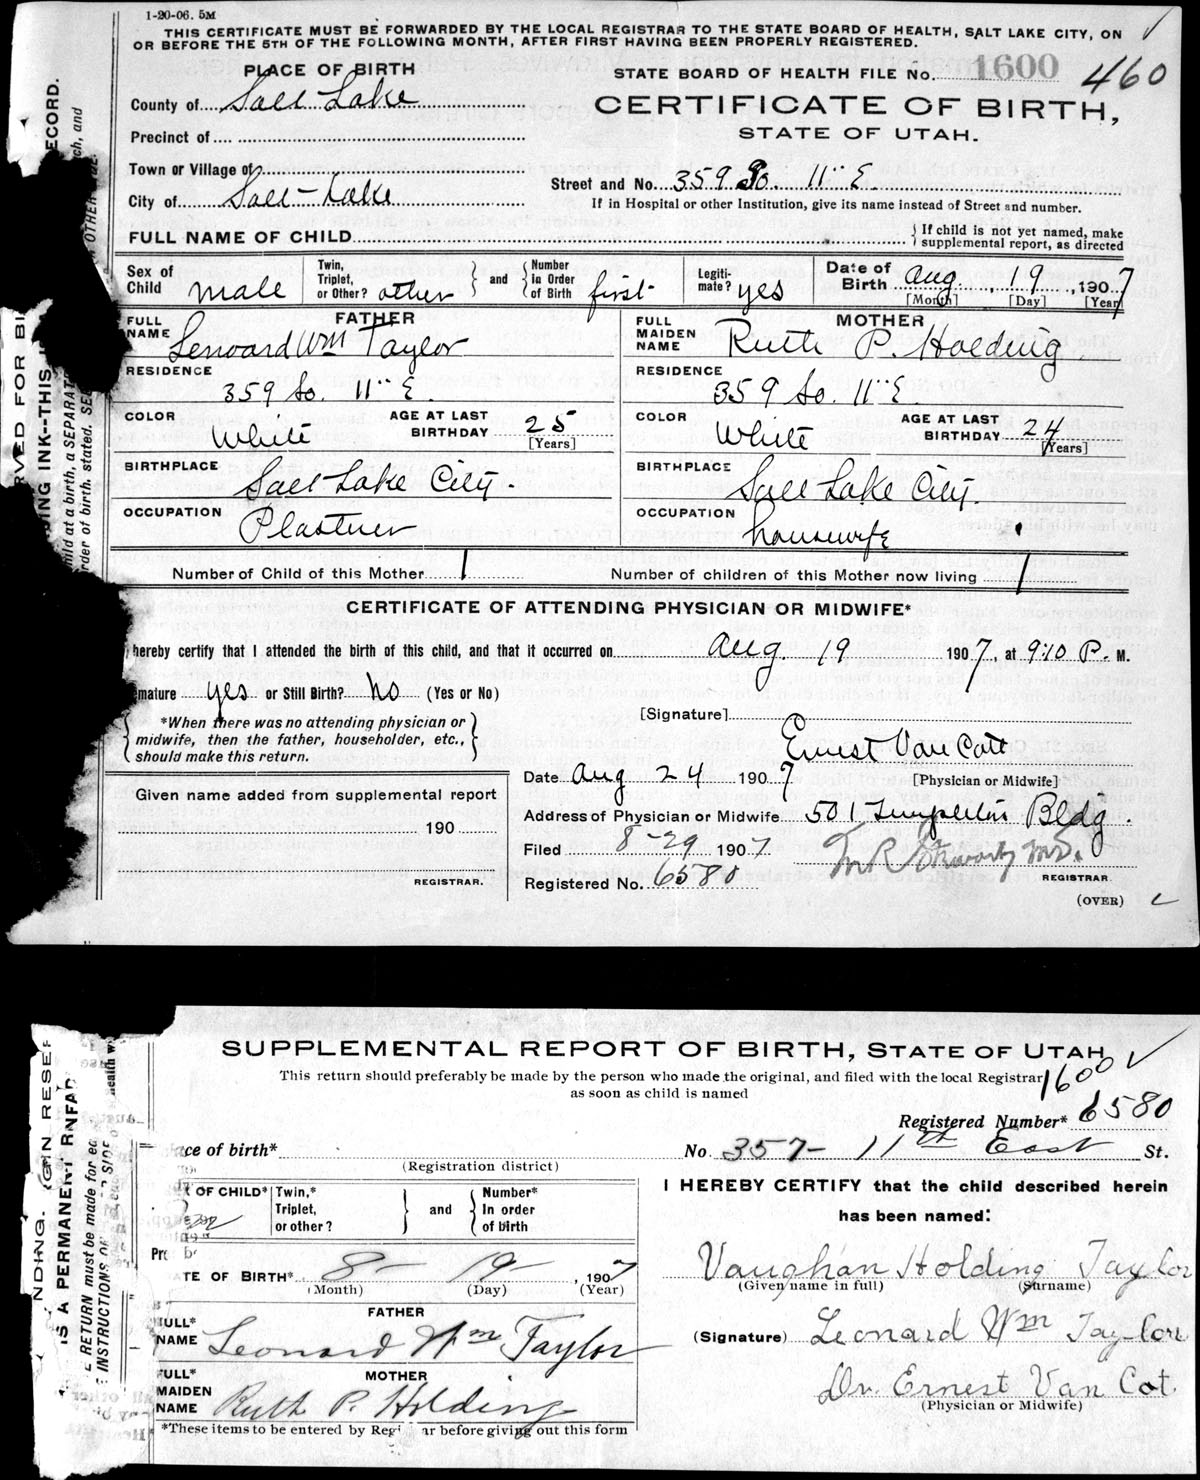 1-20-06. 5M
THIS CERTIFICATE MUST BE FORWARDED BY THE LOCAL REGISTRAR TO THE STATE BOARD OF HEALTH, SALT LAKE CITY, ON
OR BEFORE THE 5TH OF THE FOLLOWING MONTH, AFTER FIRST HAVING BEEN PROPERLY REGISTERED.
PLACE OF BIRTH
STATE BOARD OF HEALTH FILE No. 1600 460
County of Salt Lake
CERTIFICATE OF BIRTH,
STATE OF UTAH.
Precinct of
Town or Village of
Street and No. 359 So. 11" E.
City of Salt Lake
If in Hospital or other Institution, give its name instead of Street and number.
FULL NAME OF CHILD
If child is not yet named, make
supplemental report, as directed
Sex of Child male
Twin, Triplet, or Other? other and Number in Order of Birth first
Legitimate? yes
Date of Birth Aug. 19, 1907
[Month] [Day] [Year]
FATHER
FULL NAME Lenoard Wm Taylor
MOTHER
FULL MAIDEN NAME Ruth P. Holding
RESIDENCE 359 So. 11" E.
RESIDENCE 359 So. 11" E.
COLOR White AGE AT LAST BIRTHDAY 25 [Years]
COLOR White AGE AT LAST BIRTHDAY 24 [Years]
BIRTHPLACE Salt Lake City.
BIRTHPLACE Salt Lake City.
OCCUPATION Plastner
OCCUPATION housewife
Number of Child of this Mother 1
Number of children of this Mother now living 1
CERTIFICATE OF ATTENDING PHYSICIAN OR MIDWIFE*
hereby certify that I attended the birth of this child, and that it occurred on Aug. 19 1907, at 9:10 P. M.
mature yes or Still Birth? no (Yes or No)
*When there was no attending physician or
midwife, then the father, householder, etc.,
should make this return.
[Signature] Ernest Van Cott
[Physician or Midwife]
Date Aug 24 1907
Given name added from supplemental report
190
REGISTRAR.
Address of Physician or Midwife 501 Templeton Bldg.
Filed 8-29 1907
REGISTRAR.
Registered No. 6580
(OVER)
SUPPLEMENTAL REPORT OF BIRTH, STATE OF UTAH
This return should preferably be made by the person who made the original, and filed with the local Registrar
as soon as child is named
1600
Registered Number* 6580
ce of birth*
(Registration district)
No. 357- 11th East St.
OF CHILD*
Twin,* Triplet, or other? and Number* In order of birth
I HEREBY CERTIFY that the child described herein
has been named:
TE OF BIRTH* 8- 19- , 1907
(Month) (Day) (Year)
Vaughan Holding Taylor
(Given name in full) (Surname)
FATHER
FULL* NAME Leonard Wm Taylor
(Signature) Leonard Wm Taylor
MOTHER
FULL* MAIDEN NAME Ruth P. Holding
Dr. Ernest Van Cot.
(Physician or Midwife)
*These items to be entered by Reg ar before giving out this form